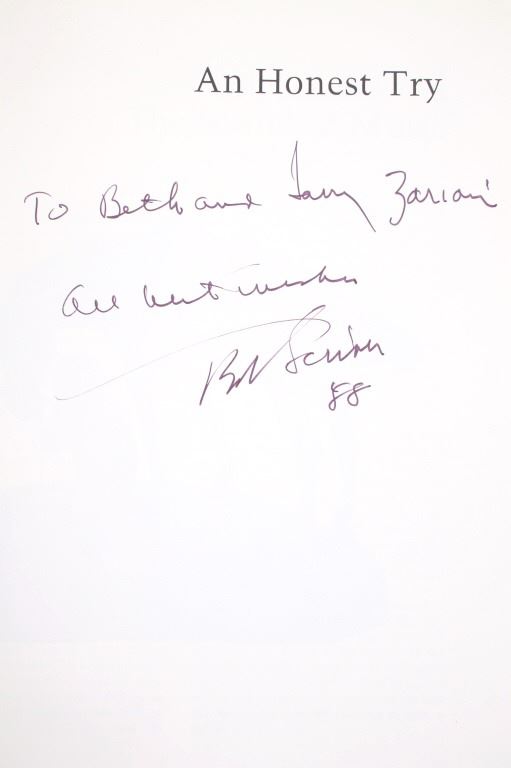 An Honest Try
To Beth and Larry Zarian
All best wishes
Bob Scriver
88